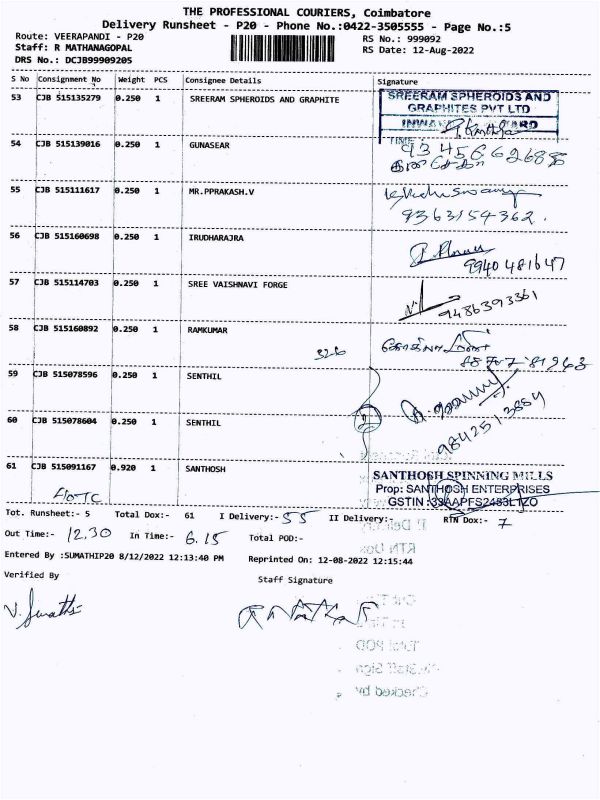 THE PROFESSIONAL COURIERS, Coimbatore
Delivery Runsheet - P20 - Phone No.:0422-3505555 - Page No.:5
Route: VEERAPANDI - P20 RS No.: 999092
Staff: R MATHANAGOPAL RS Date: 12-Aug-2022
DRS No.: DCJB99909205
S No Consignment No Weight PCS Consignee Details Signature
53 CJB 515135279 0.250 1 SREERAM SPHEROIDS AND GRAPHITE SREERAM SPHEROIDS AND
GRAPHITES PVT LTD
TIME:
54 CJB 515139016 0.250 1 GUNASEAR
55 CJB 515111617 0.250 1 MR.PPRAKASH.V
9363154362.
56 CJB 515160698 0.250 1 IRUDHARAJRA
9940481647
57 CJB 515114703 0.250 1 SREE VAISHNAVI FORGE
9486393361
58 CJB 515160892 0.250 1 RAMKUMAR
59 CJB 515078596 0.250 1 SENTHIL
60 CJB 515078604 0.250 1 SENTHIL
9842513884
61 CJB 515091167 0.920 1 SANTHOSH SANTHOSH SPINNING MILLS
Prop: SANTHOSH ENTERPRISES
GSTIN
Tot. Runsheet:- 5 Total Dox:- 61 I Delivery:- 55 II Delivery:- RTN Dox:- 7
Out Time:- 12.30 In Time:- 6.15 Total POD:-
Entered By :SUMATHIP20 8/12/2022 12:13:40 PM Reprinted On: 12-08-2022 12:15:44
Verified By Staff Signature
V. Sumathi